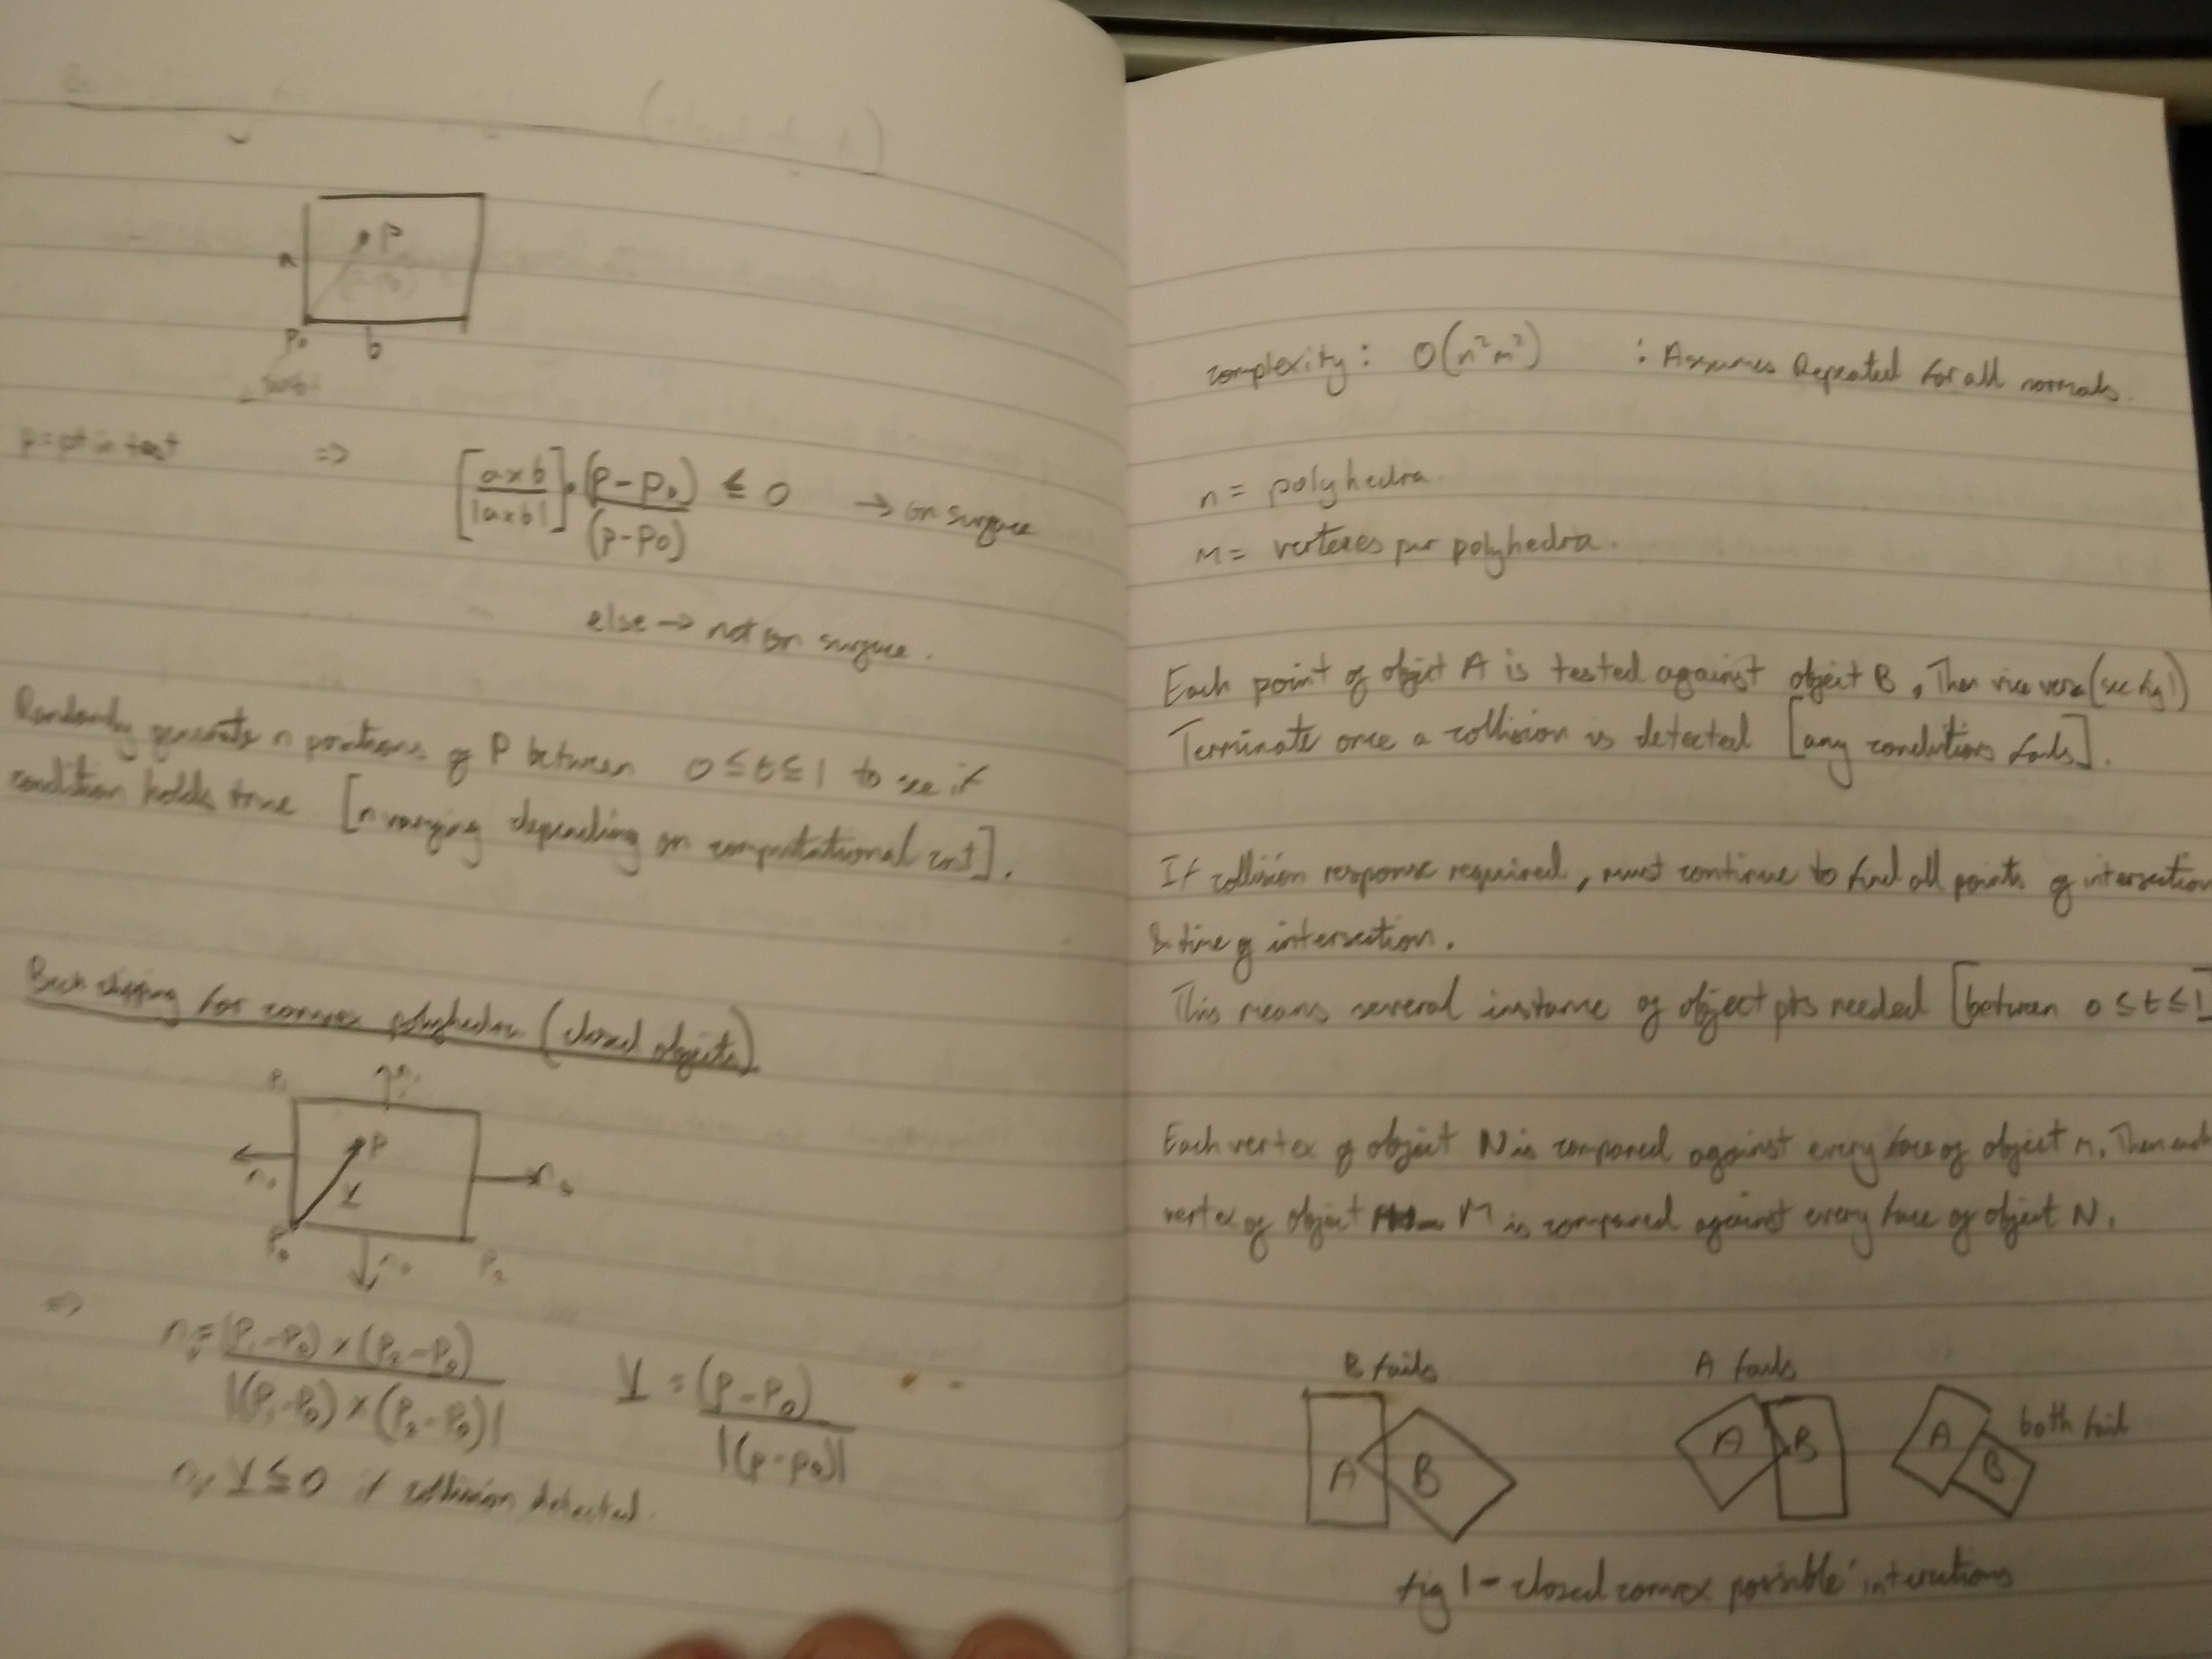 P
a
(P-P₀)
P₀
b
p = pt in test ⇒ [axb / |axb|] · (P-P₀) / (P-P₀) ≤ 0 → on surgue
else → not on surgue.
Randomly generate n positions of P between 0 ≤ t ≤ 1 to see if
condition holds true [n varying depending on computational cost].
Back clipping for convex polyhedra (closed objects)
P₁
P
V
P₀
P₂
⇒ n = (P₁-P₀) x (P₂-P₀) / |(P₁-P₀) x (P₂-P₀)| V = (P-P₀) / |(P-P₀)|
V ≤ 0 if collision detected.
complexity: O(n²m²) : Assumes Repeated for all normals.
n = polyhedra
m = vertexes per polyhedra.
Each point of object A is tested against object B, Then vice versa (see fig 1)
Terminate once a collision is detected [any conditions fails].
If collision response required, must continue to find all points of intersection
& time of intersection.
This means several instance of object pts needed [between 0 ≤ t ≤ 1]
Each vertex of object N is compared against every face of object M. Then each
vertex of object M is compared against every face of object N.
B fails
A fails
both fail
A B
A B
A B
fig 1 - closed convex possible interactions